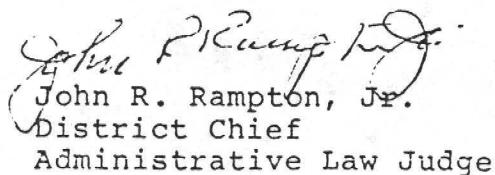 John R. Rampton, Jr.
John R. Rampton, Jr.
District Chief
Administrative Law Judge